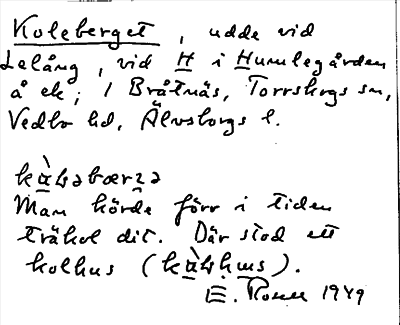 Koleberget, udde vid
Lelång, vid H i Humlegården
å ek; / Bråtnäs, Torrskogs sn,
Vedbo hd, Älvsborgs l.
Man körde förr i tiden
träkol dit. Där stod ett
kolhus ( ).
E. 1949